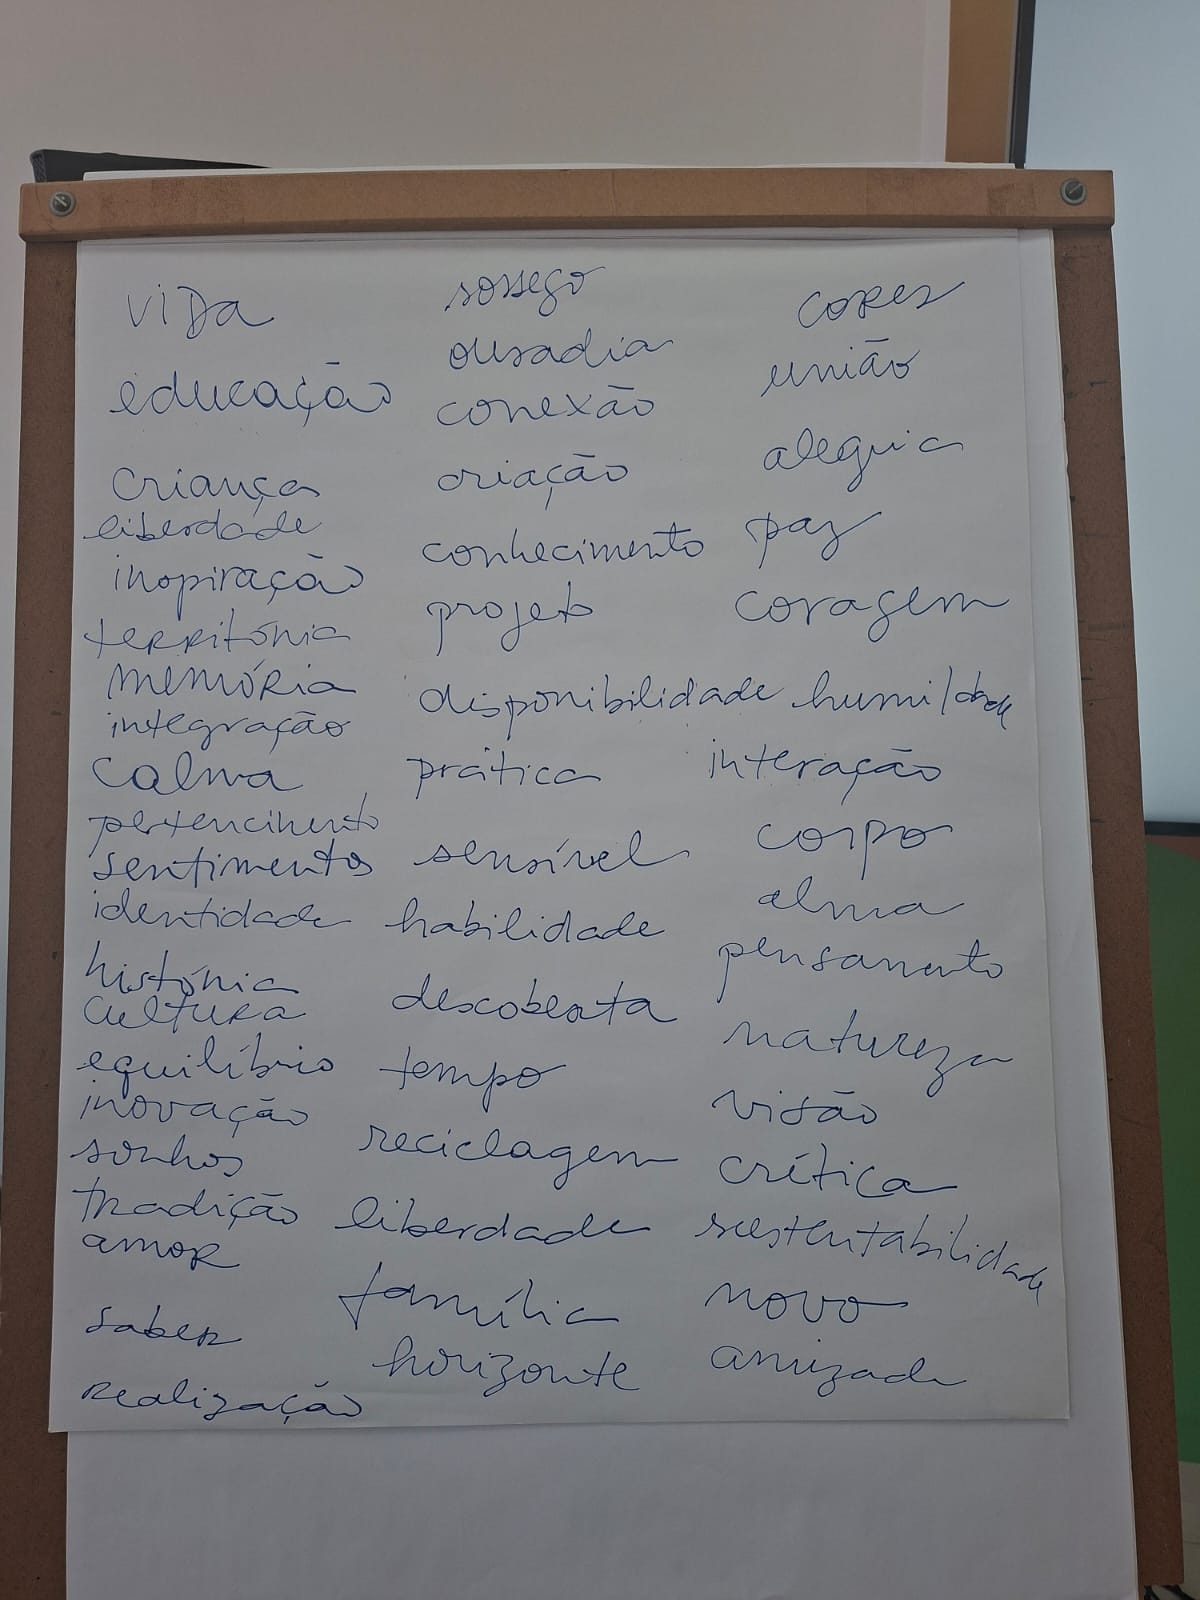 vida
educação
criança
liberdade
inspiração
território
memória
integração
calma
pertencimento
sentimentos
identidade
história
cultura
equilíbrio
inovação
sonhos
tradição
amor
saber
realização
sossego
ousadia
conexão
criação
conhecimento
projeto
disponibilidade
prática
sensível
habilidade
descoberta
tempo
reciclagem
liberdade
família
horizonte
cores
união
alegria
paz
coragem
humildade
interação
corpo
alma
pensamento
natureza
visão
crítica
sustentabilidade
novo
amizade